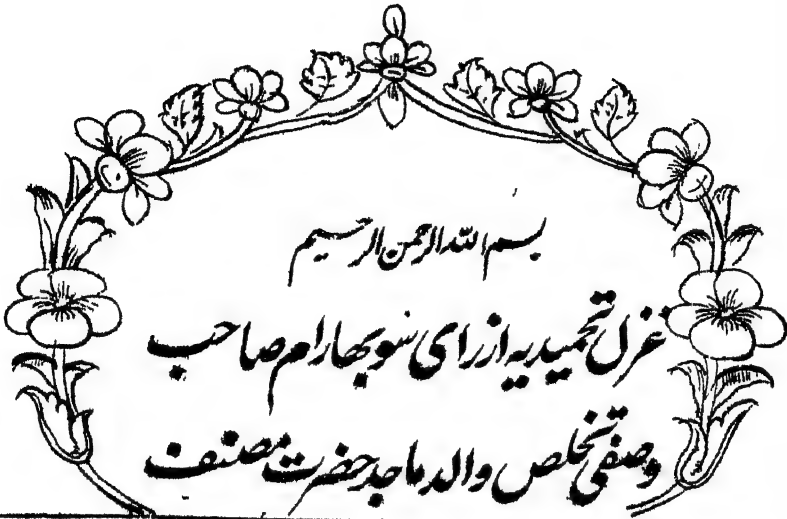 بسم اللہ الرحمن الرحیم
غزل تحمیدیہ از رای سوبھا رام صاحب
وصفی تخلص والد ماجد حضرت مصنف